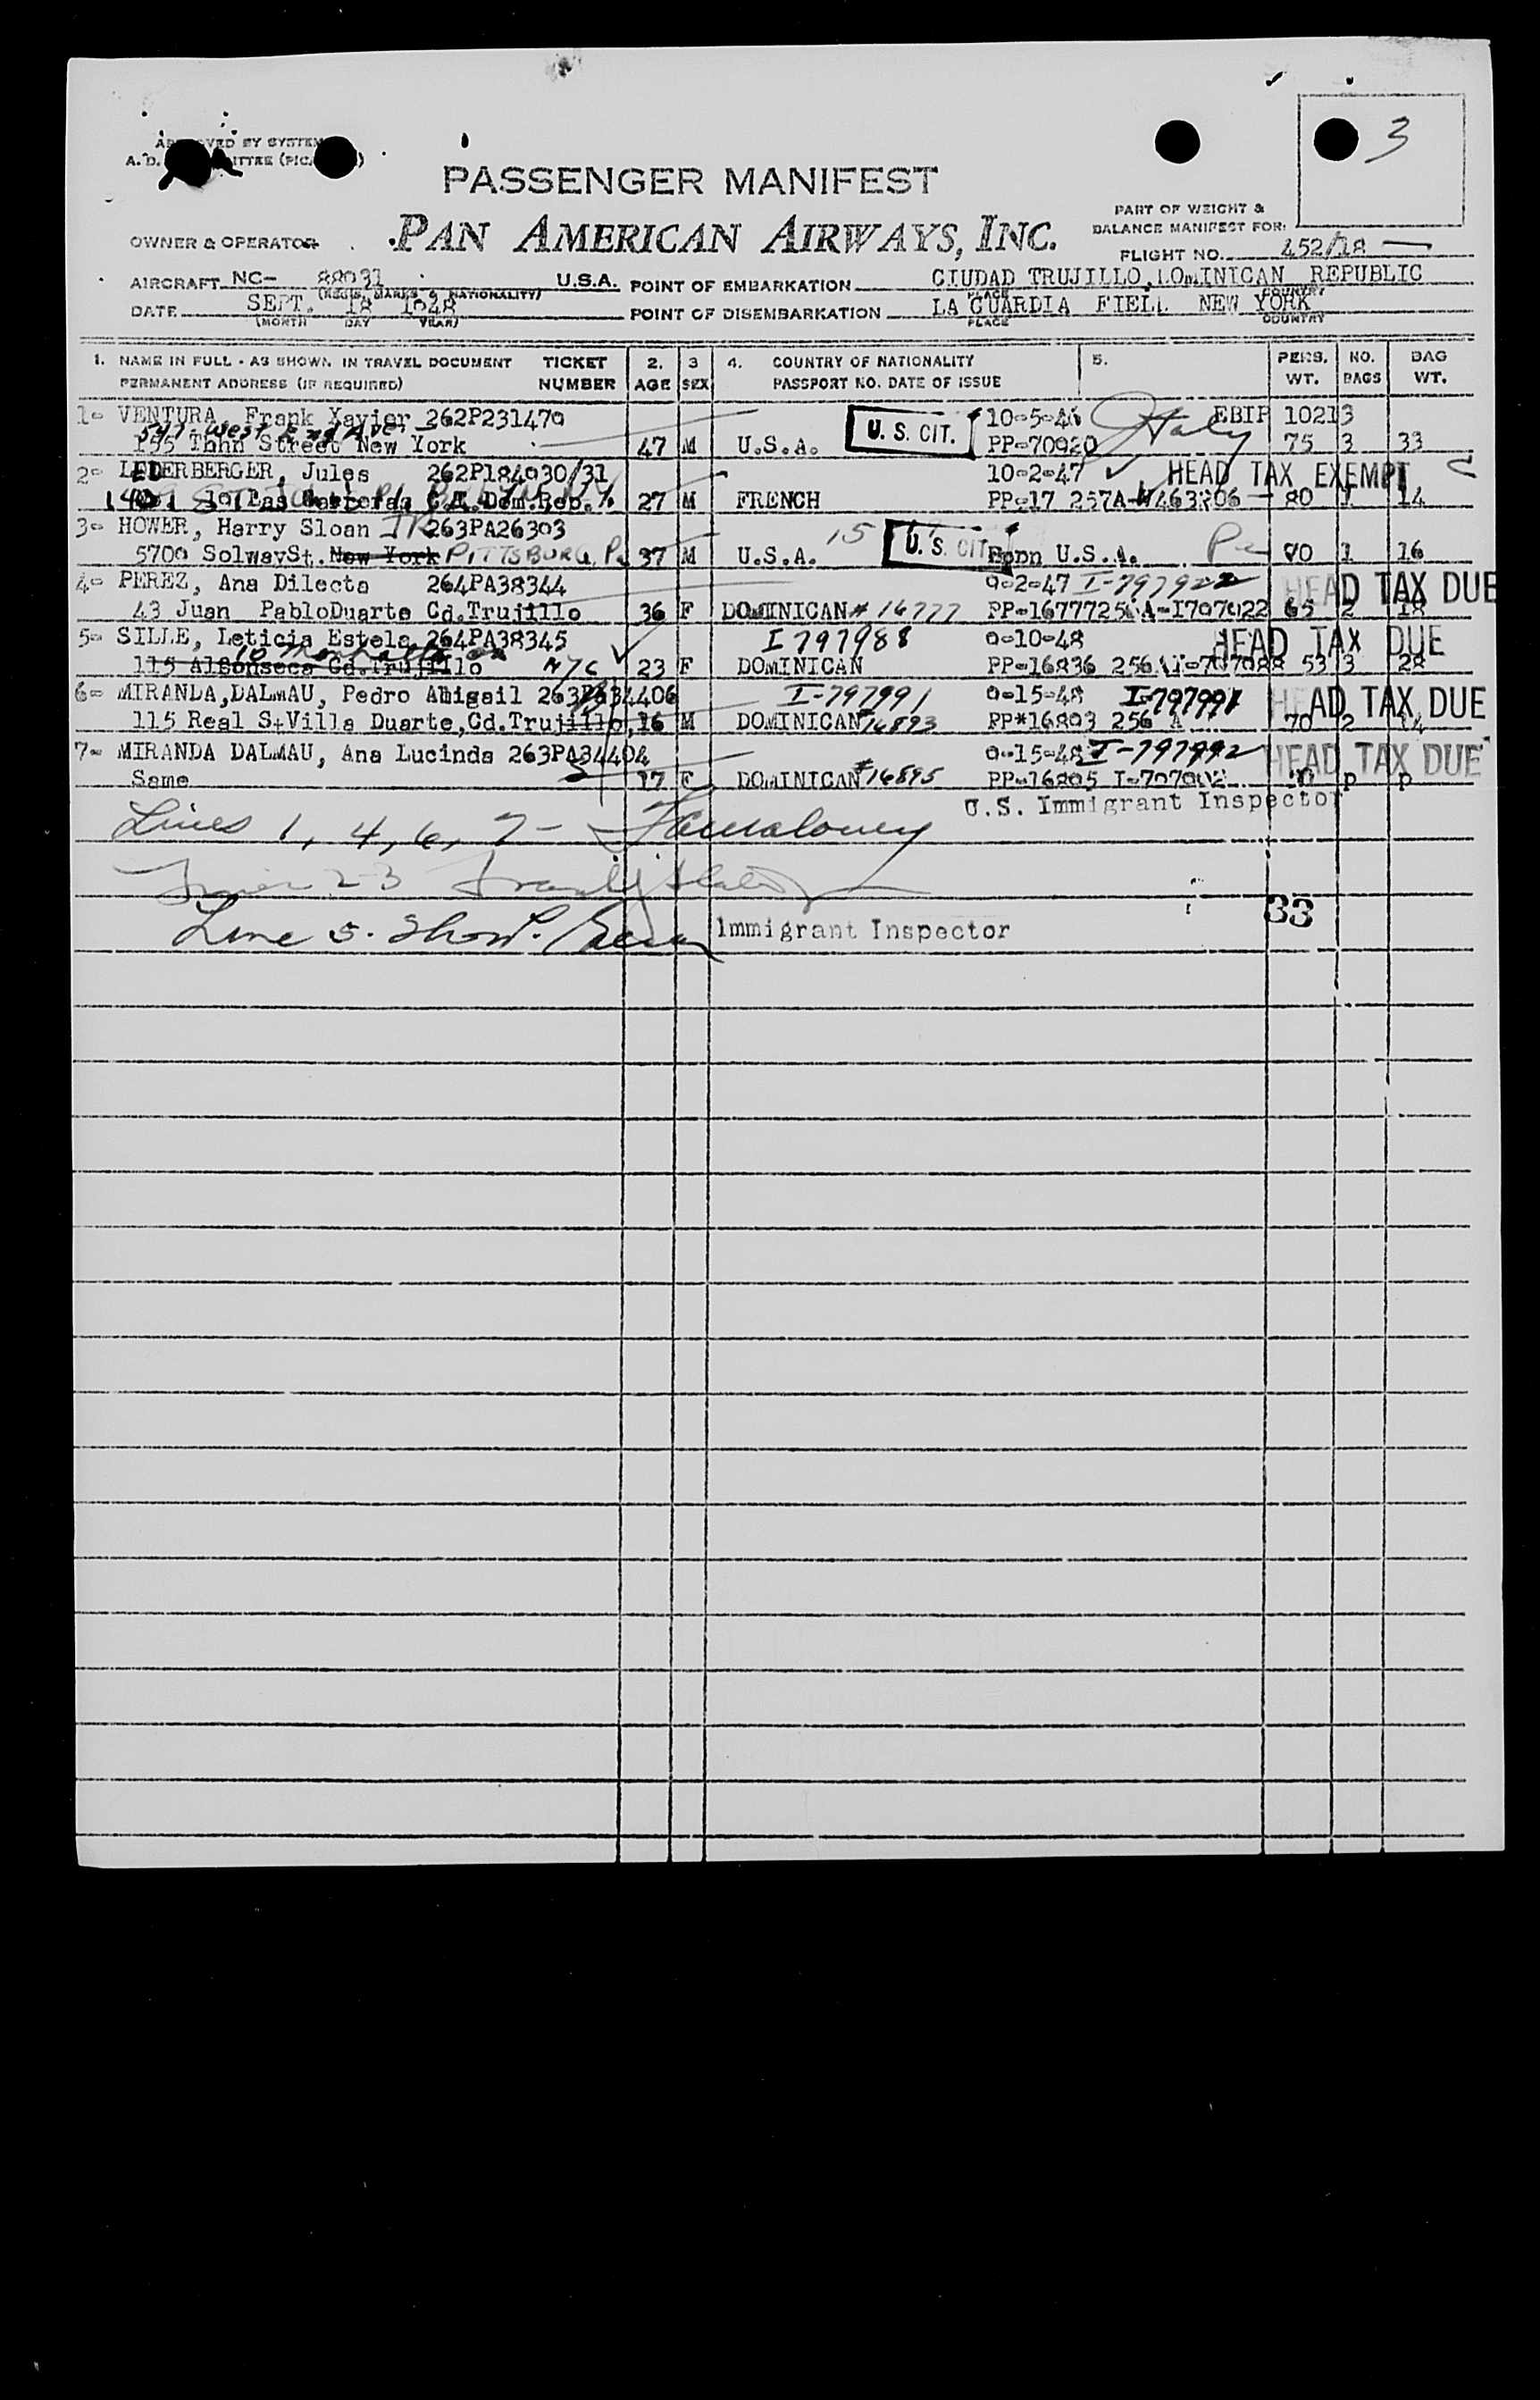 3
PASSENGER MANIFEST
PAN AMERICAN AIRWAYS, INC.
OWNER & OPERATOR
PART OF WEIGHT &
BALANCE MANIFEST FOR:
FLIGHT NO. 452/18
AIRCRAFT NC- 88031 U.S.A. POINT OF EMBARKATION CIUDAD TRUJILLO, DOMINICAN REPUBLIC
(REGIS. MARKS & NATIONALITY) PLACE COUNTRY
DATE SEPT. 18 1948 POINT OF DISEMBARKATION LA GUARDIA FIELD NEW YORK
(MONTH DAY YEAR) PLACE COUNTRY
1. NAME IN FULL - AS SHOWN IN TRAVEL DOCUMENT TICKET 2. 3 4. COUNTRY OF NATIONALITY 5. PERS. NO. BAG
PERMANENT ADDRESS (IF REQUIRED) NUMBER AGE SEX PASSPORT NO. DATE OF ISSUE WT. BAGS WT.
1- VENTURA, Frank Xavier 262P231470 U. S. CIT. 10-5-46 Italy EBIP 10213
547 West End Ave.
Street New York 47 M U.S.A. PP-70920 75 3 33
2- LEDERBERGER, Jules 262P184030/31 10-2-47 HEAD TAX EXEMPT
Dom.Rep. 27 M FRENCH PP-17 257A- 80 1 14
3- HOWER, Harry Sloan JR 263PA26303 15 U. S. CIT.
5700 SolwaySt. New York PITTSBURG, Pa 37 M U.S.A. Born U.S.A. Pa 90 1 16
4- PEREZ, Ana Dilecta 264PA38344 9-2-47 I-797922 HEAD TAX DUE
43 Juan PabloDuarte Cd.Trujillo 36 F DOMINICAN # 16777 65 2 18
5- SILLE, Leticia Estela 264PA38345 I 797988 9-10-48 HEAD TAX DUE
115 Alfonseca Cd.Trujillo NYC 23 F DOMINICAN PP-16836 256 53 3 28
6- MIRANDA,DALMAU, Pedro Abigail I-797991 9-15-48 I-797991 HEAD TAX DUE
115 Real St Villa Duarte,Cd.Trujillo, 16 M DOMINICAN 16893 PP*16893 256 A 70 2 14
7- MIRANDA DALMAU, Ana Lucinda 263PA34404 9-15-48 I-797992 HEAD TAX DUE
Same 17 F DOMINICAN #16895 PP-16895 p p
U.S. Immigrant Inspector
Lines 1, 4, 6, 7-
2 3
Line 5. Immigrant Inspector 33